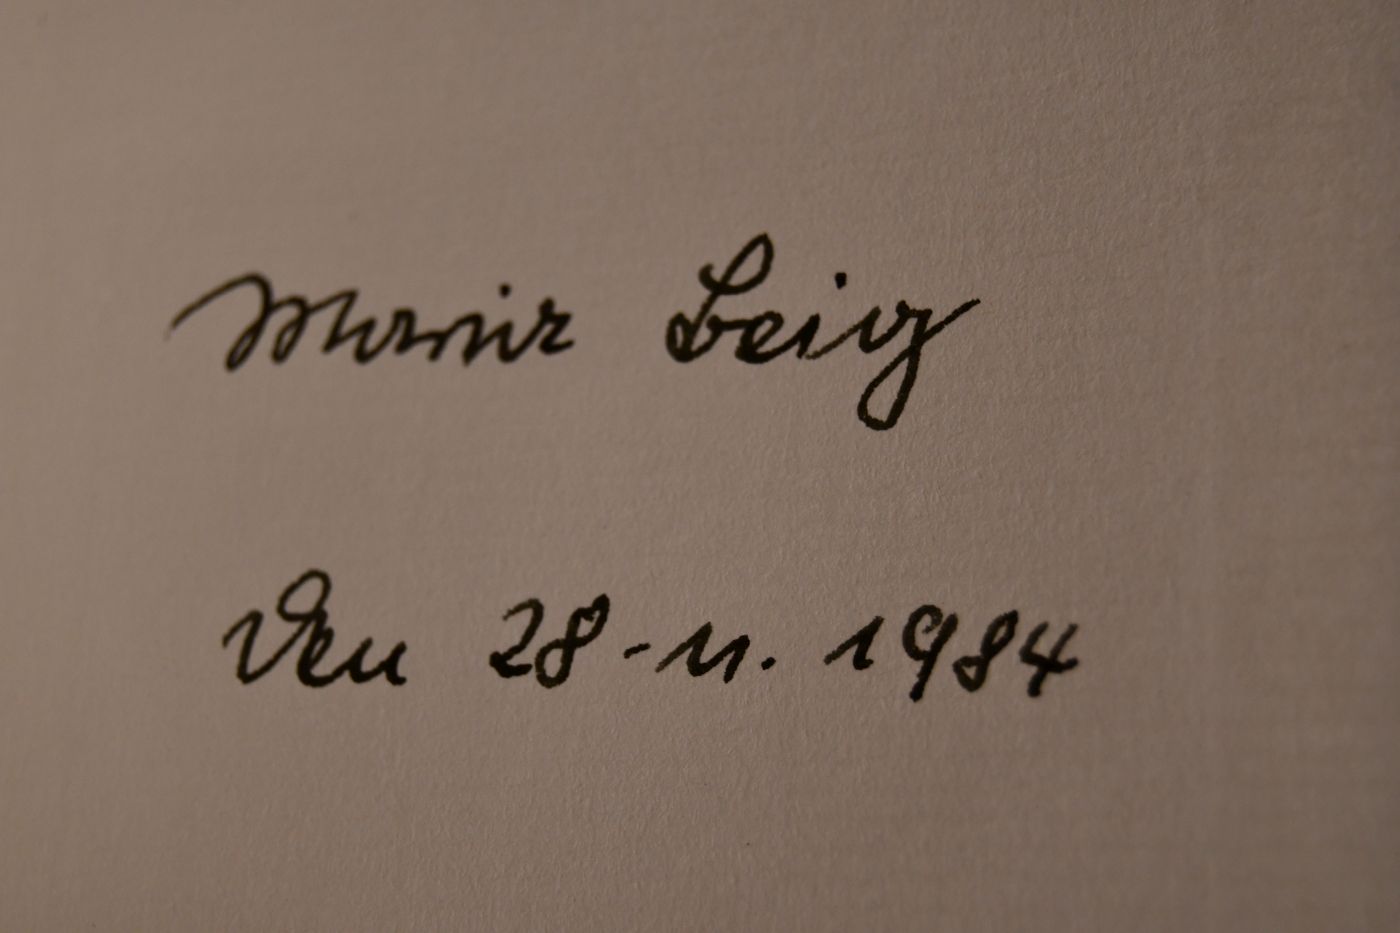 Maria Beig
Den 28-11. 1984